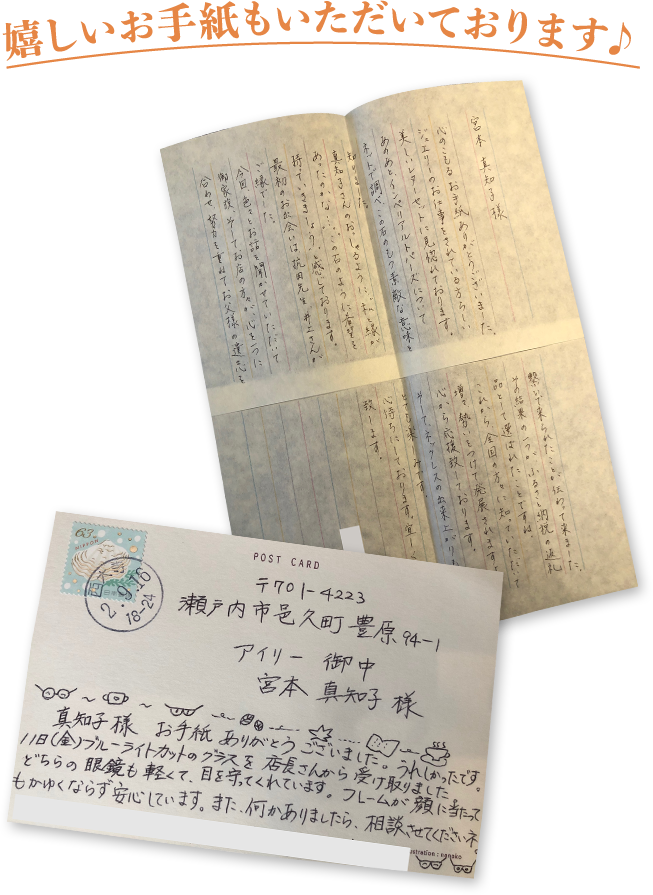 嬉しいお手紙もいただいております♪
宮本 真知子様
心のこもるお手紙ありがとうございました。
ジュエリーのお仕事をされている方らしい
美しいレターセットに見惚れております。
あのあとインペリアルトパーズについて
ネットで調べ、この石のもつ素敵な意味を
知りました。
真知子さんのおっしゃるように、私と縁が
あったのかな…、この石のように希望を
持っていきましょうと感じております。
最初のお出会いは
ご縁でした。
今回、色々とお話を聞かせていただいて
御家族、そしてお店の方々が、心を一つに
合わせ、努力を重ねてお父様の遺志を
繋いで来られたことが伝わって来ました。
その結果の一つが、ふるさと納税の返礼
品として選ばれたことですね。
これから、全国の方々に知っていただいて
増々勢いをつけて発展されますよう
心から応援致しております。
そして、ネックレスの出来上がりを
とても楽しみです。
心待ちにしております。
致します。
63
NIPPON
2.9.16
18-24
POST CARD
〒701-4223
瀬戸内市邑久町豊原94-1
アイリー 御中
宮本 真知子 様
真知子様 お手紙 ありがとうございました。うれしかったです。
11日(金)ブルーライトカットのグラスを 店長さんから 受け取りました
どちらの 眼鏡も 軽くて、目を守ってくれています。フレームが 顔に当たって
もかゆくならず安心しています。また、何かありましたら、相談させてくださいネ。